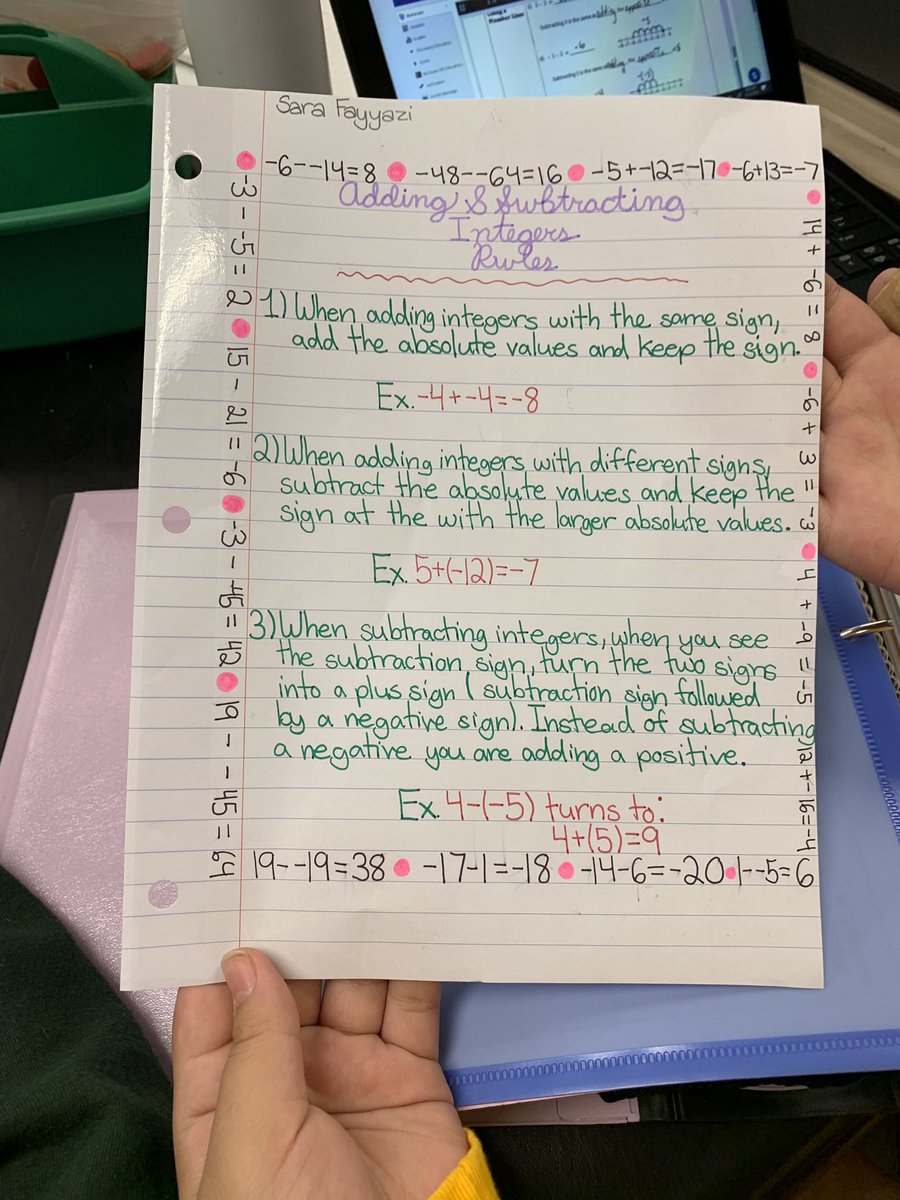 Sara Fayyazi
-6--14=8 -48--64=16 -5+-12=-17 -6+13=-7
Adding & Subtracting
Integers
Rules
1) When adding integers with the same sign,
add the absolute values and keep the sign.
Ex. -4+-4=-8
2) When adding integers with different signs,
subtract the absolute values and keep the
sign at the with the larger absolute values.
Ex. 5+(-12)=-7
3) When subtracting integers, when you see
the subtraction sign, turn the two signs
into a plus sign (subtraction sign followed
by a negative sign). Instead of subtracting
a negative you are adding a positive.
Ex. 4-(-5) turns to:
4+(5)=9
19--19=38 -17-1=-18 -14-6=-20 1--5=6
-3--5=2 15-21=-6 -3--45=42 19--45=64
14+-6=8 -6+3=-3 4+-9=-5 12+-16=-4
Using a
Number Line